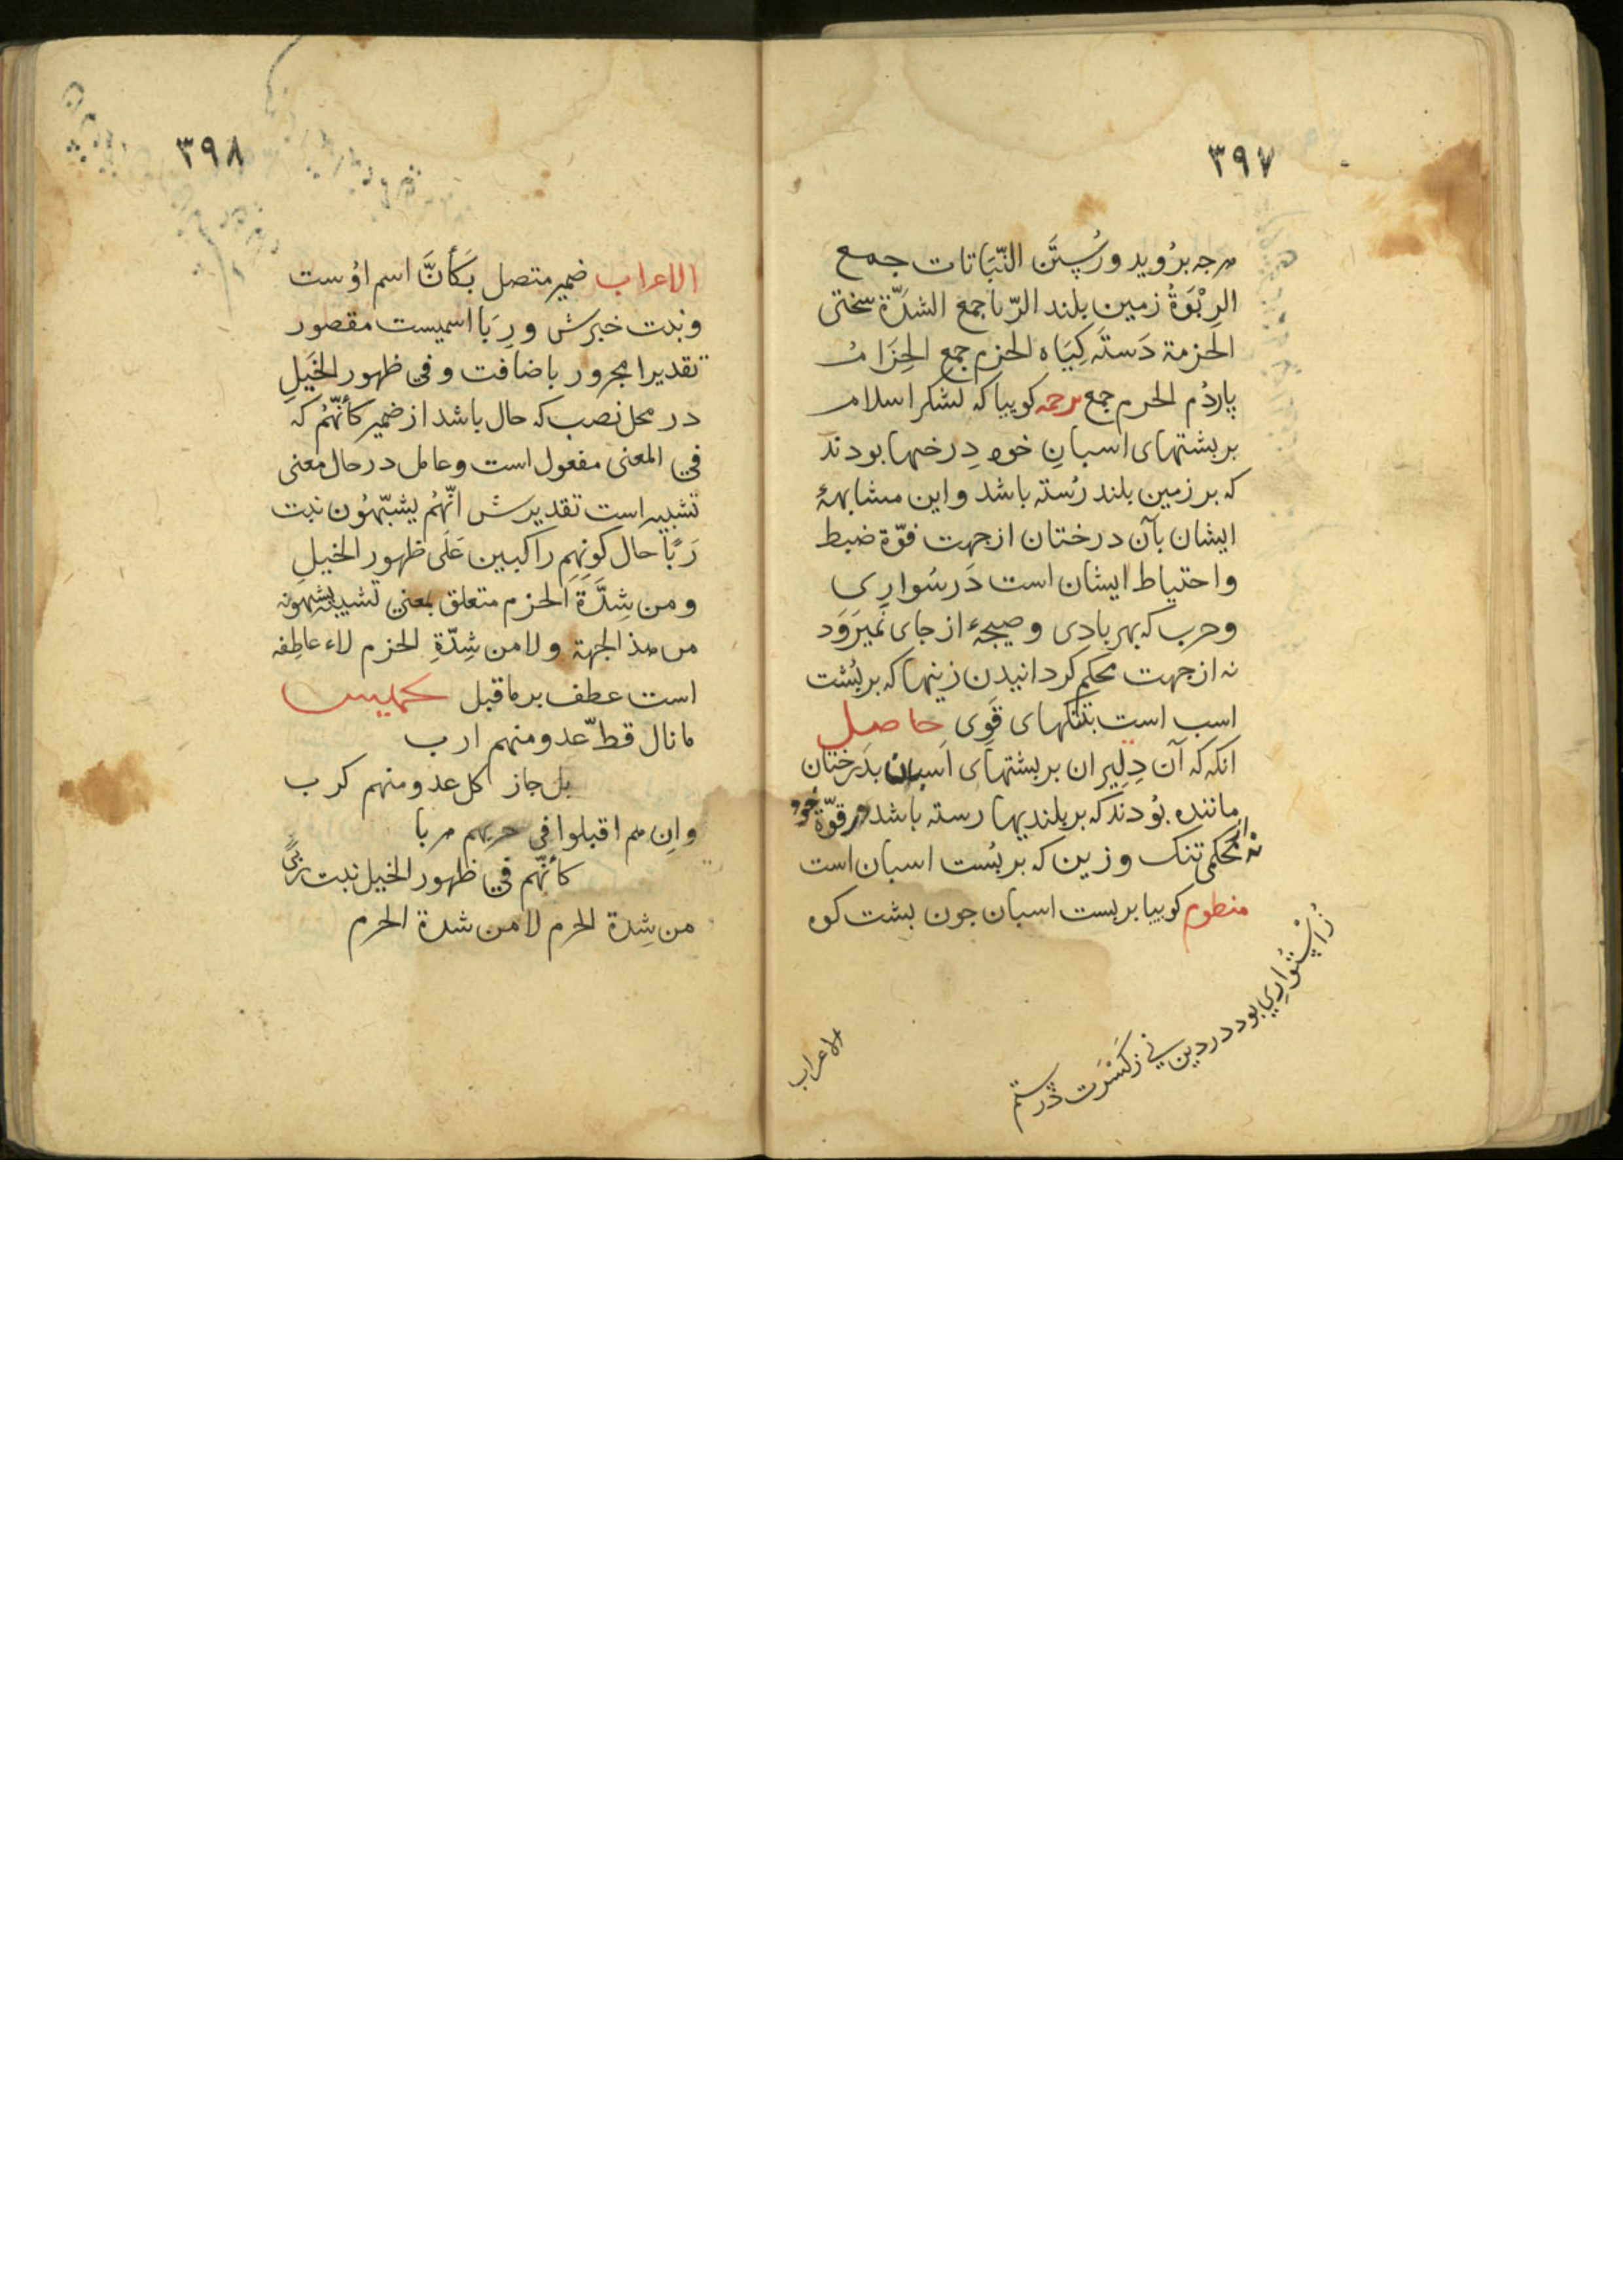 ٣٩٧
هرجه برُويد ورُستَن النّبَاتات جمع
الرِبْوَةُ زمين بلند الرّبا جمع الشدّة سختى
الحزمة دَستَه كِيَاه الحزم جمع الحِزَامُ
پاردُم الحرم جمع ترجمه كوييا كه لشكر اسلام
بر بشتهاى اسبانِ خود دِرختها بودند
كه بر زمين بلند رُسته باشد واين مشابهۀ
ايشان بآن درختان از جهت قوّة ضبط
واحتياط ايشان است دَر سُوارِى
وحرب كه بهر بادِى وصيحۀ از جاى نَميرَوَد
نه از جهت محكم كردانيدن زينها كه بر بُشت
اسب است بتنكهاى قَوِى حاصل
انكه كه آن دِليران بر بشتهاى اسبان بدَرختان
مانده بُودند كه بر بلنديها رسته باشد در قوّة خود
نه از محكمى تنك وزين كه بر بُست اسبان است
منظوم كوييا بر بست اسبان جون بشت كوه
زُاسْتُوارِي بود در دين ني زكَثْرَت در ستم
الاعراب
٣٩٨
الاعراب ضمير متصل بكَأَنَّ اسم اوُست
ونبت خبرش ورِبَا اسميست مقصور
تقديرا مجرور باضافت وفي ظهور الخَيلِ
در محل نصب كه حال باشد از ضمير كأنّهُم كه
في المعنى مفعول است وعامل در حال معنى
تشبيه است تقديرش انّهُم يشبّهُون نبت
رَبًا حال كونِهِم راكبين عَلَى ظهور الخيلِ
ومن شِدَّةَ الحزم متعلق بمعني تشبيه يشبهونه
من هذ الجهة ولا من شِدّةِ الحزم لاء عاطِفه
است عطف بر ماقبل تخميس
ما نال قطّ عدو منهم ارب
بل جاز كل عدو منهم كرب
وانِ هم اقبلوا في حربهم هربا
كأنّهم في ظهور الخيل نبت ربًى
من شِدة الحزم لا من شدة الحزم